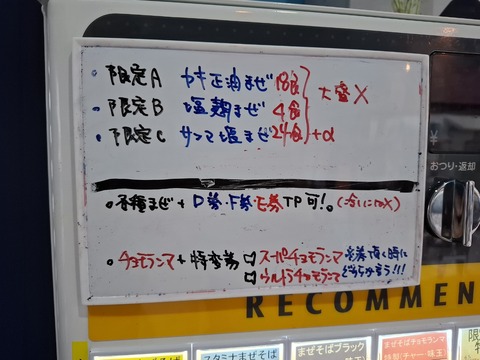 ・限定A カキ正油まぜ 18食
・限定B 塩麹まぜ 4食
・限定C サンマ塩まぜ 24食+α
大盛X
・各種まぜ + D券・F券・E券 TP可!。(冷いにはX)
・チョモランマ + 特変券 □スーパーチョモランマ
□ウルトラチョモランマ
食券頂く時に
どちらか言う!!!
RECOMMEN
¥
おつり・返却
スタミナまぜそば
まぜそばブラック
まぜそばチョモランマ
限定